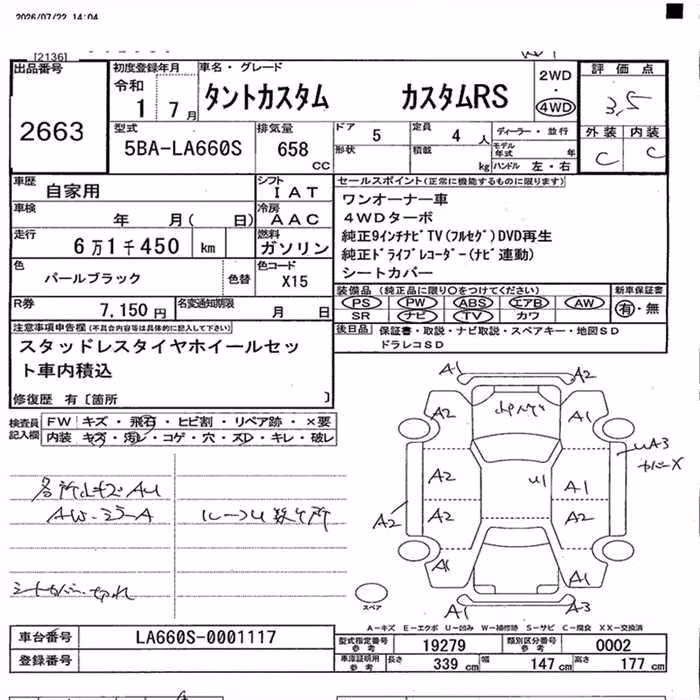 2026/07/22 14:04
[2136]
出品番号
2663
初度登録年月
令和
1 7月
車名・グレード
タントカスタム カスタムRS
2WD
・
4WD
評価点
3.5
外装 内装
C C
型式
5BA-LA660S
排気量
658
CC
ドア
5
定員
4 人
ディーラー・並行
形状
積載
kg
モデル年式 年
ハンドル 左・右
車歴
自家用
シフト
IAT
車検
年 月( 日)
冷房
AAC
走行
6万1千450 km
燃料
ガソリン
色
パールブラック
色替
色コード
X15
R券
7,150円
名変通知期限
月 日
セールスポイント(正常に機能するものに限ります)
ワンオーナー車
4WDターボ
純正9インチナビTV(フルセグ)DVD再生
純正ドライブレコーダー(ナビ連動)
シートカバー
装備品(純正品に限り○をつけてください)
新車保証書
PS PW ABS エアB AW
SR ナビ TV カワ
有・無
後日品
保証書・取説・ナビ取説・スペアキー・地図SD
ドラレコSD
注意事項申告欄(不具合内容等は具体的に記入して下さい)
スタッドレスタイヤホイールセッ
ト車内積込
修復歴 有〔箇所 〕
検査員
記入欄
FW キズ・飛石・ヒビ割・リペア跡・×要
内装 キズ・汚レ・コゲ・穴・スレ・キレ・破レ
AW
シートカバー切れ
A1
A2
A2
A1
A2
U1
A1
UA3
カバーX
A2
A2
A2
A1
A1
A1
A3
スペア
A−キズ E−エクボ U−凹み W−補修跡 S−サビ C−腐食 XX−交換済
車台番号
LA660S-0001117
登録番号
型式指定番号
参考
19279
類別区分番号
参考
0002
車庫証明用
参考
長さ
339 cm
幅
147 cm
高さ
177 cm